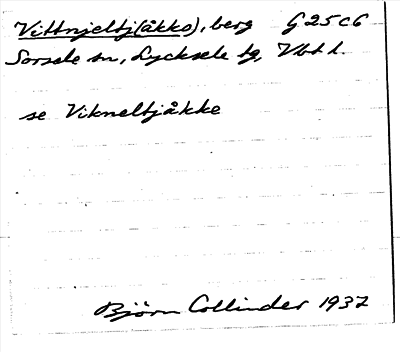 Vittnjeltj(åkko), berg G 25 c 6
Sorsele sn, Lycksele tg, Vbt l.
se Vikneltjåkke
Björn Collinder 1937